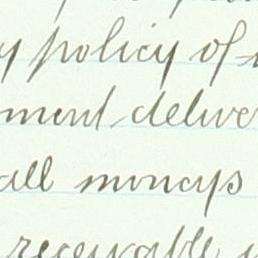 y policy of
ment deliver
all moneys
receivable